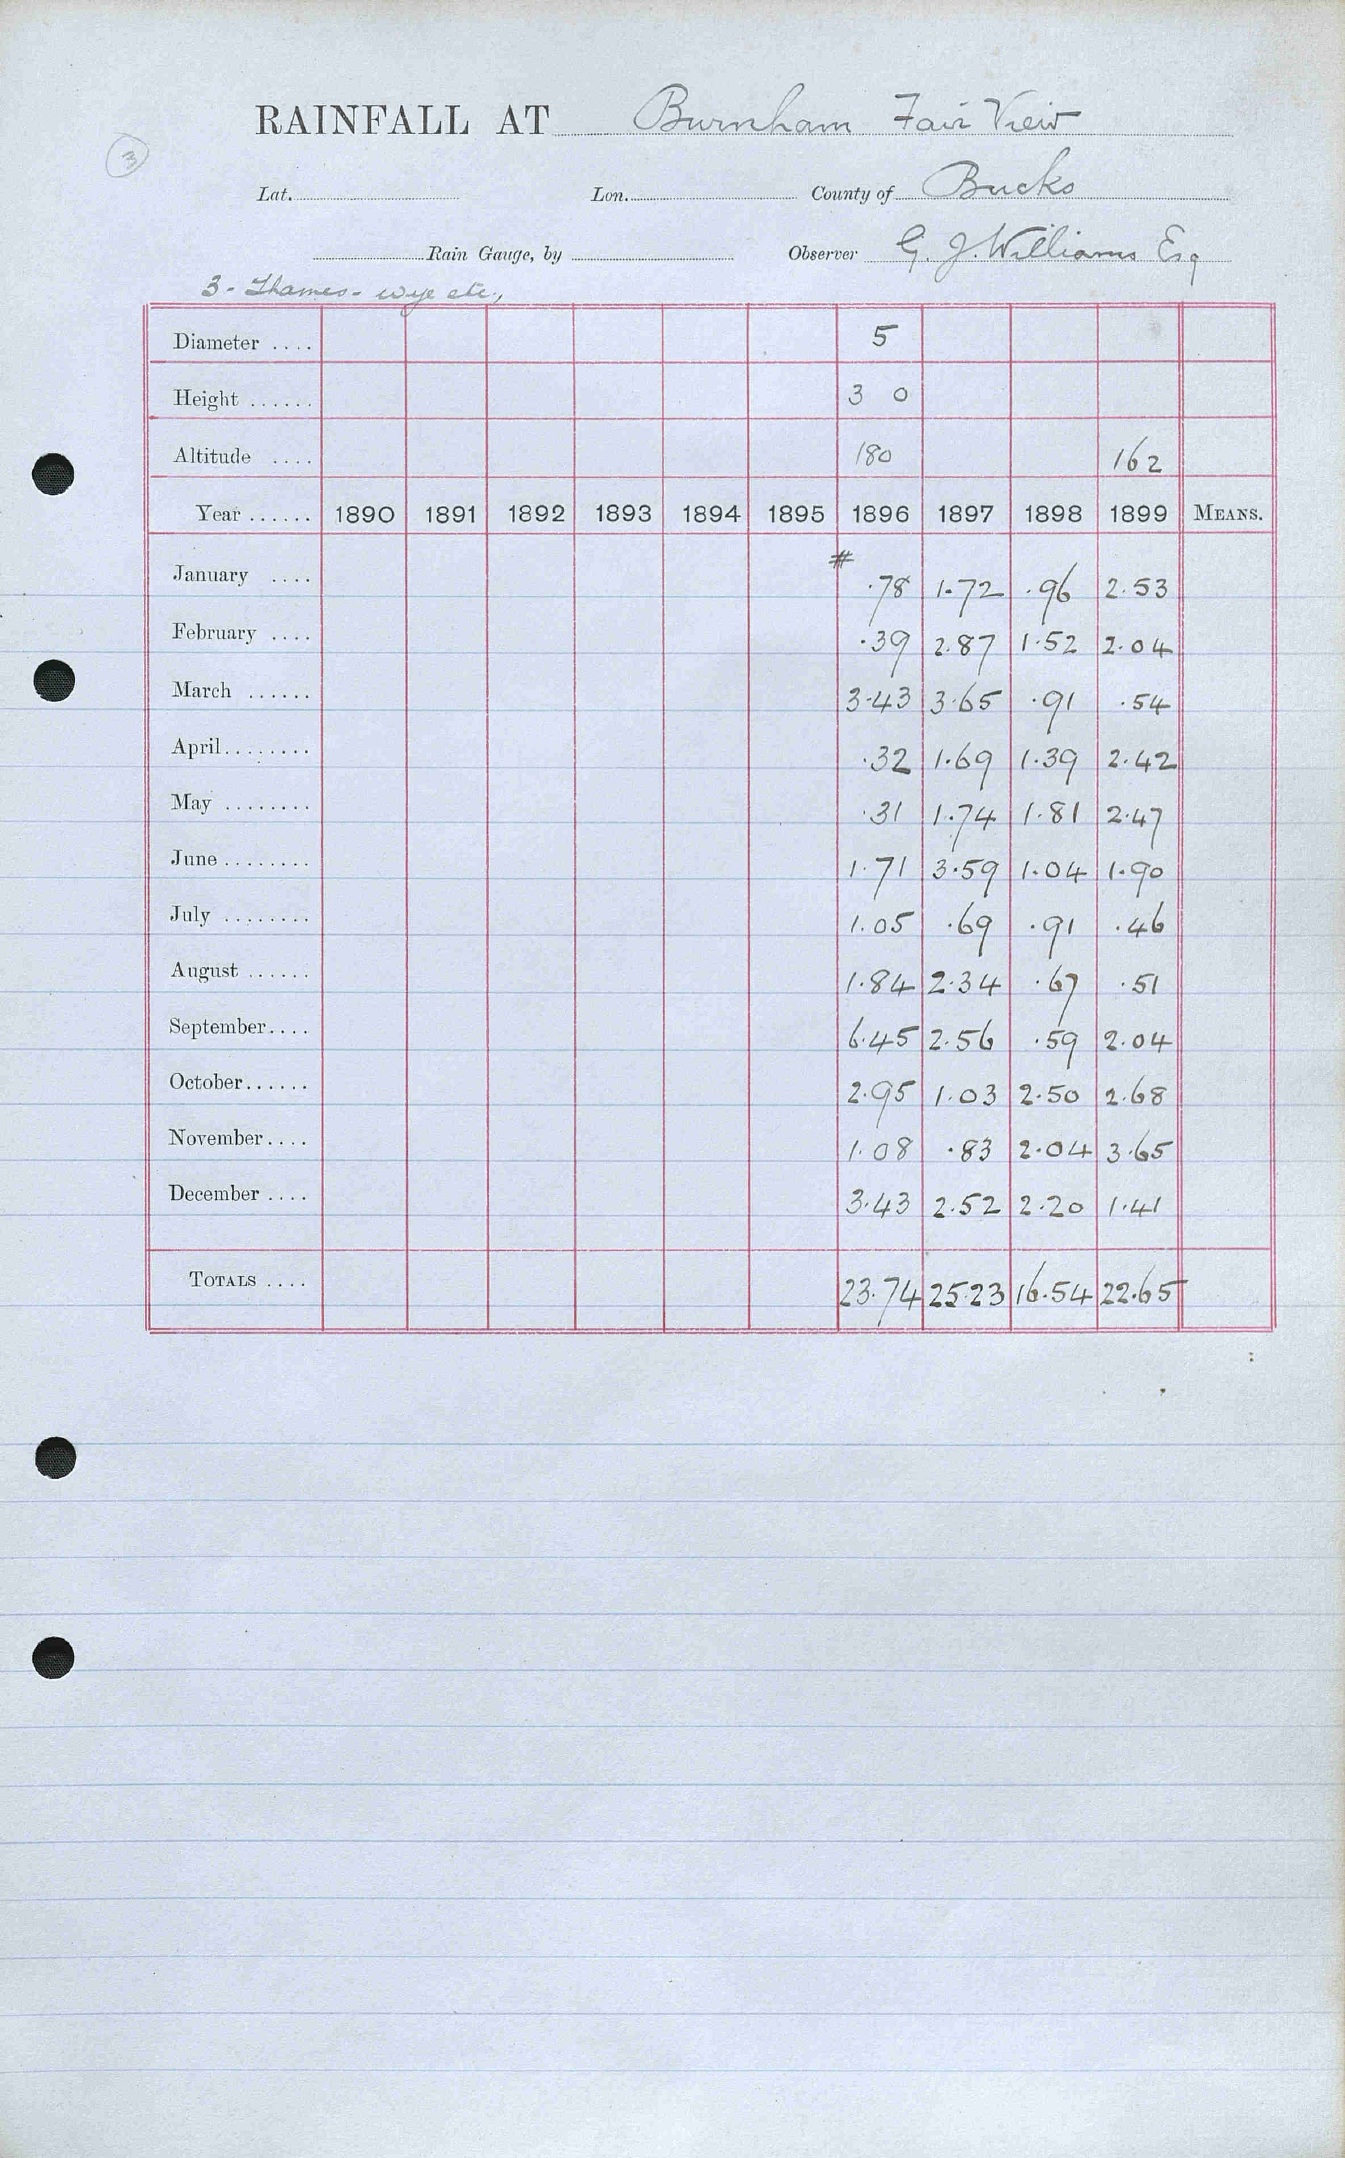 RAINFALL AT Burnham Fair View
3
Lat. Lon. County of Bucks
Rain Gauge, by Observer G. J. Williams Esq
3 - Thames - Wye etc.,
Diameter .... 5
Height ...... 3 0
Altitude .... 180 162
Year ...... 1890 1891 1892 1893 1894 1895 1896 1897 1898 1899 MEANS.
#
January .... .78 1.72 .96 2.53
February .... .39 2.87 1.52 2.04
March ...... 3.43 3.65 .91 .54
April........ .32 1.69 1.39 2.42
May ........ .31 1.74 1.81 2.47
June ........ 1.71 3.59 1.04 1.90
July ........ 1.05 .69 .91 .46
August ...... 1.84 2.34 .67 .51
September.... 6.45 2.56 .59 2.04
October...... 2.95 1.03 2.50 2.68
November.... 1.08 .83 2.04 3.65
December .... 3.43 2.52 2.20 1.41
TOTALS .... 23.74 25.23 16.54 22.65